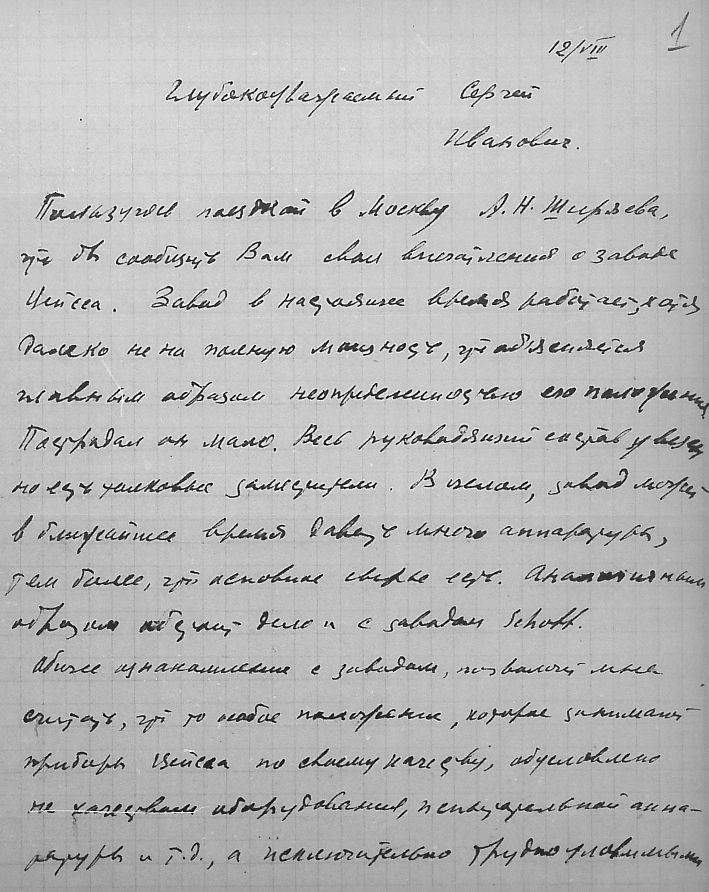 1
12/VIII
Глубокоуважаемый Сергей
Иванович.
Пользуюсь поездкой в Москву А.Н. Ширяева,
что бы сообщить Вам свои впечатления о заводе
Цейсса. Завод в настоящее время работает, хотя
далеко не на полную мощность, что объясняется
главным образом неопределенностью его положения.
Пострадал он мало. Весь руководящий состав увезен,
но есть толковые заместители. В целом, завод может
в ближайшее время давать много аппаратуры,
тем более, что основное сырье есть. Аналогичным
образом обстоит дело и с заводом Schott.
Общее ознакомление с заводом, позволяет мне
считать, что то особое положение, которое занимают
приборы Цейсса по своему качеству, обусловлено
не качеством оборудования, испытательной аппа-
ратуры и т.д., а исключительно трудно уловимыми